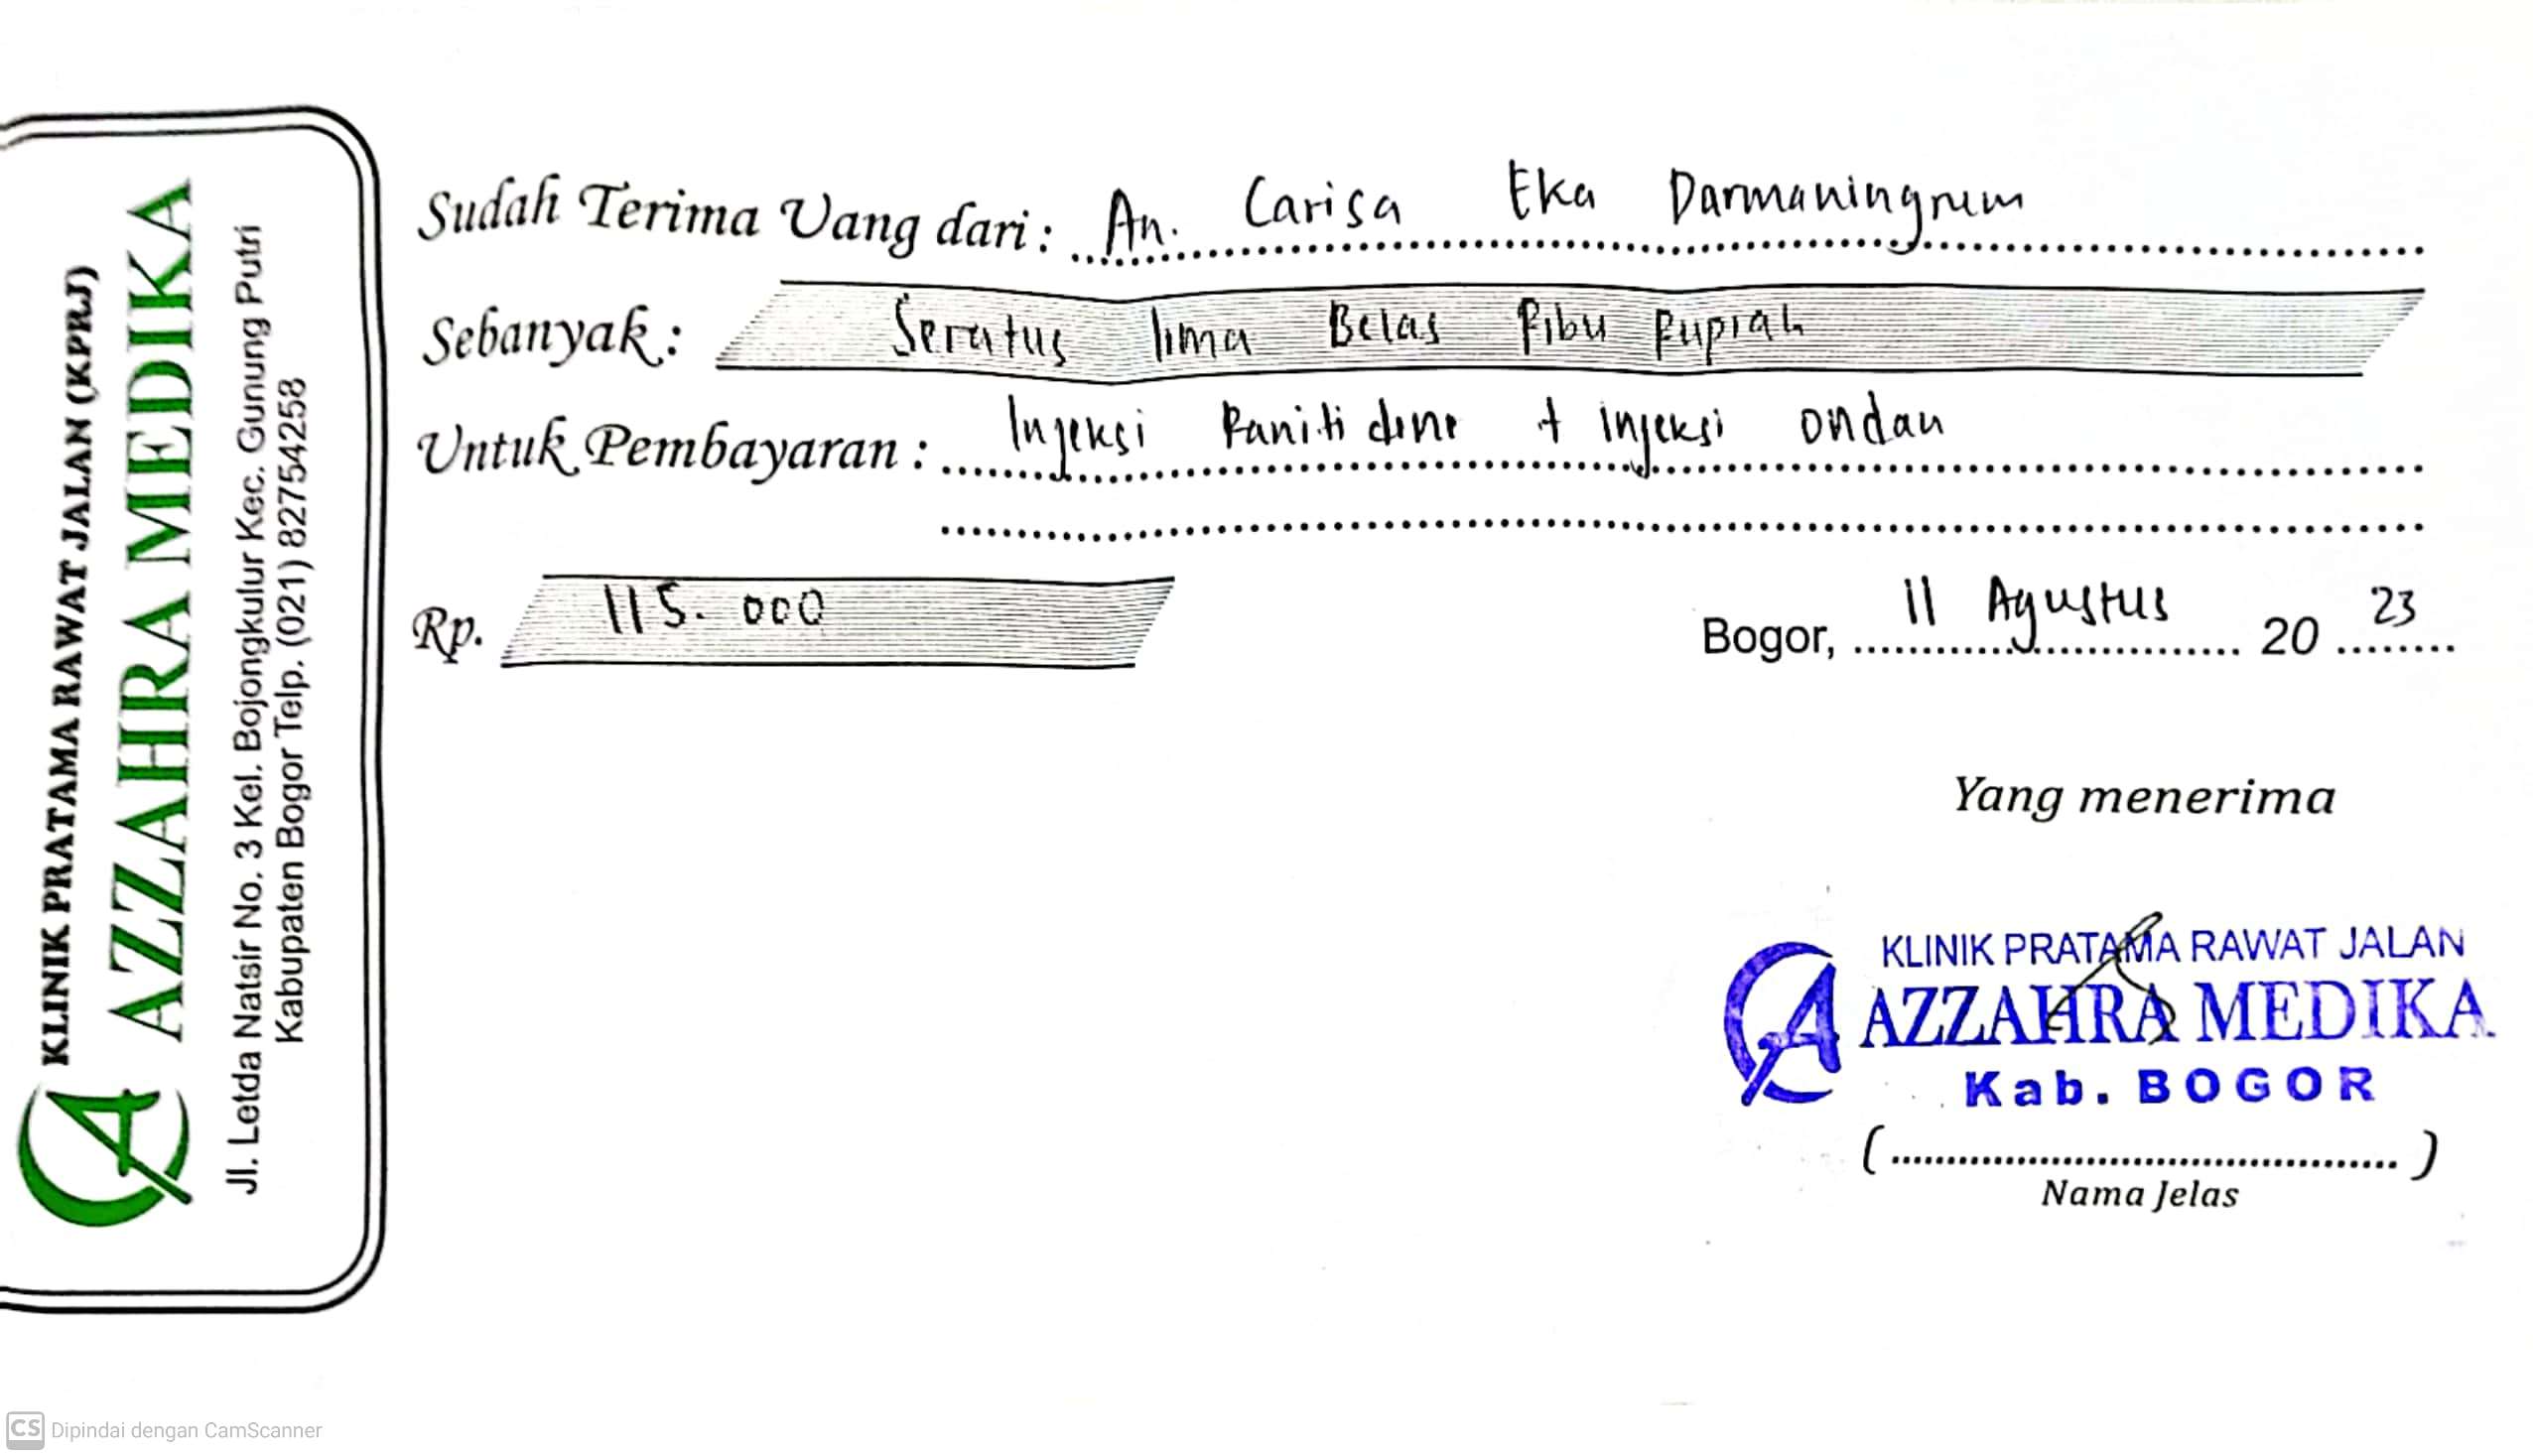 KLINIK PRATAMA RAWAT JALAN (KPRJ)
AZZAHRA MEDIKA
Jl. Letda Natsir No. 3 Kel. Bojongkulur Kec. Gunung Putri
Kabupaten Bogor Telp. (021) 82754258
Sudah Terima Uang dari : An. Carisa Eka Darmaningrum
Sebanyak : Seratus lima Belas Ribu Rupiah
Untuk Pembayaran : Injeksi Ranitidine + injeksi ondan
Rp. 115.000
Bogor, 11 Agustus 20 23
Yang menerima
KLINIK PRATAMA RAWAT JALAN
AZZAHRA MEDIKA
Kab. BOGOR
(.............................................)
Nama Jelas
CS Dipindai dengan CamScanner